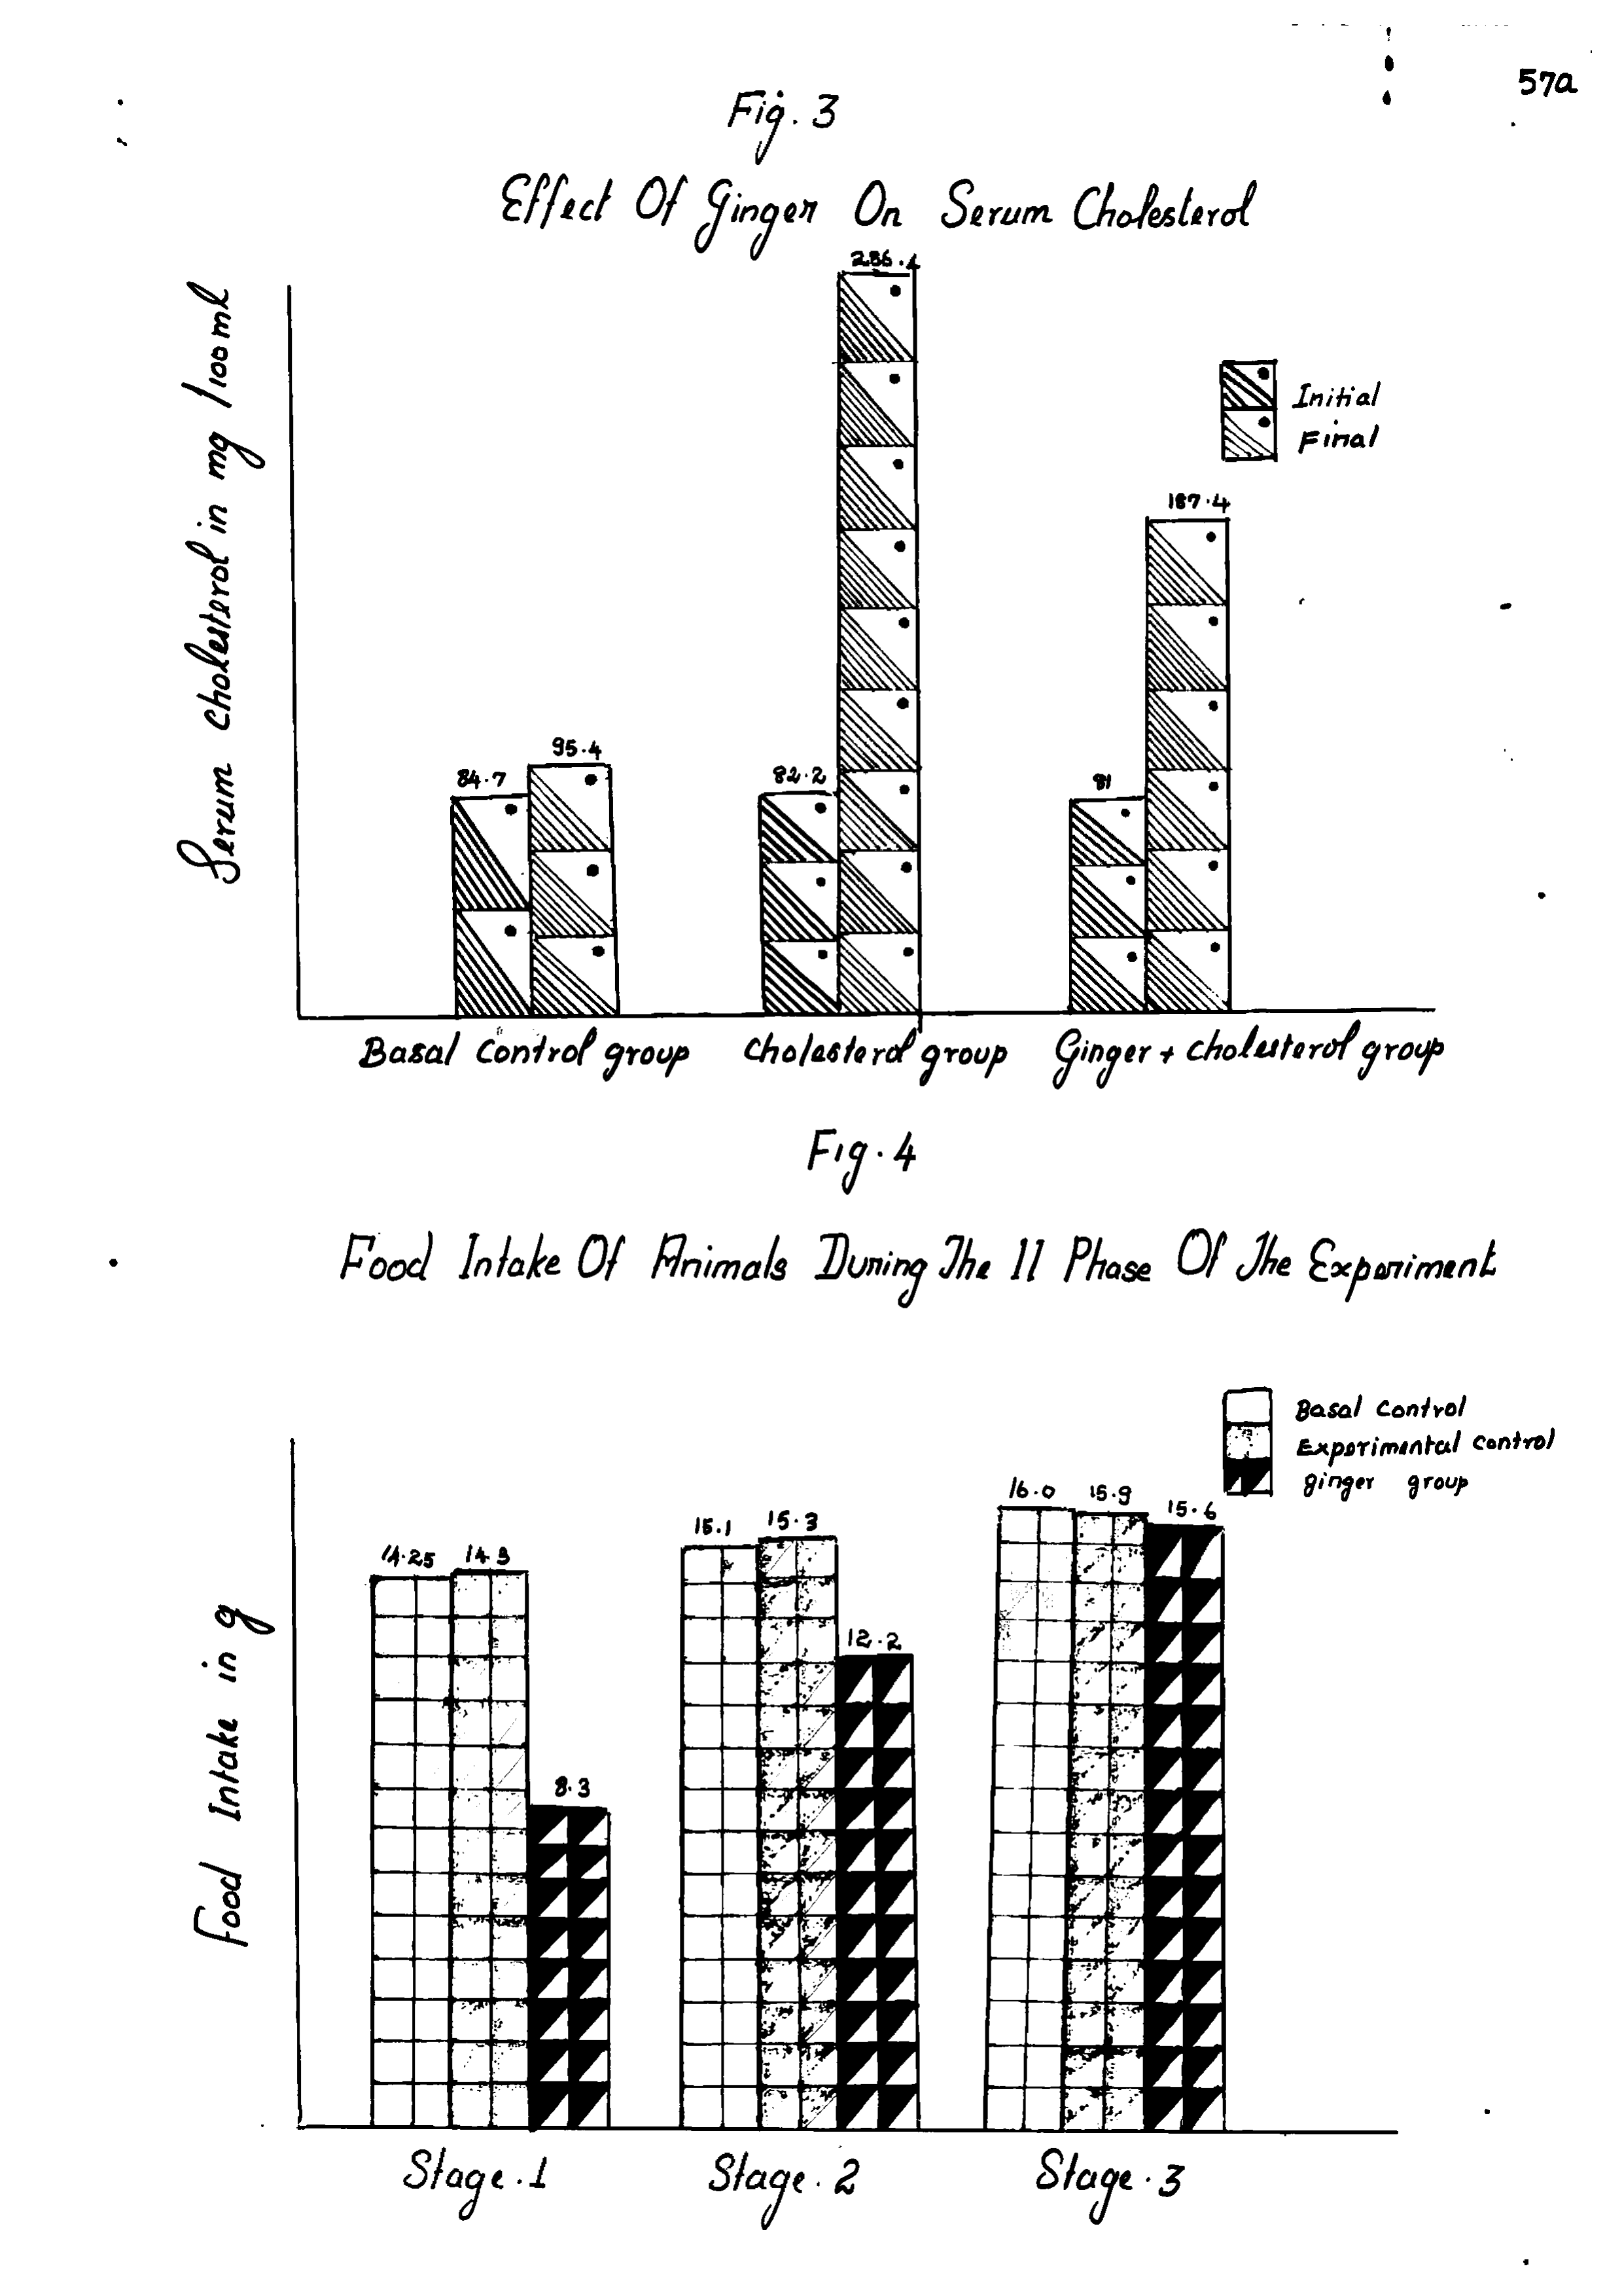 57a
Fig. 3
Effect Of Ginger On Serum Cholesterol
Serum cholesterol in mg /100ml
286.4
Initial
Final
187.4
95.4
84.7
82.2
81
Basal Control group
Cholesterol group
Ginger + cholesterol group
Fig. 4
Food Intake Of Animals During The II Phase Of The Experiment
Food Intake in g
Basal Control
Experimental Control
ginger group
14.25
14.3
8.3
15.1
15.3
12.2
16.0
15.9
15.6
Stage.1
Stage.2
Stage.3